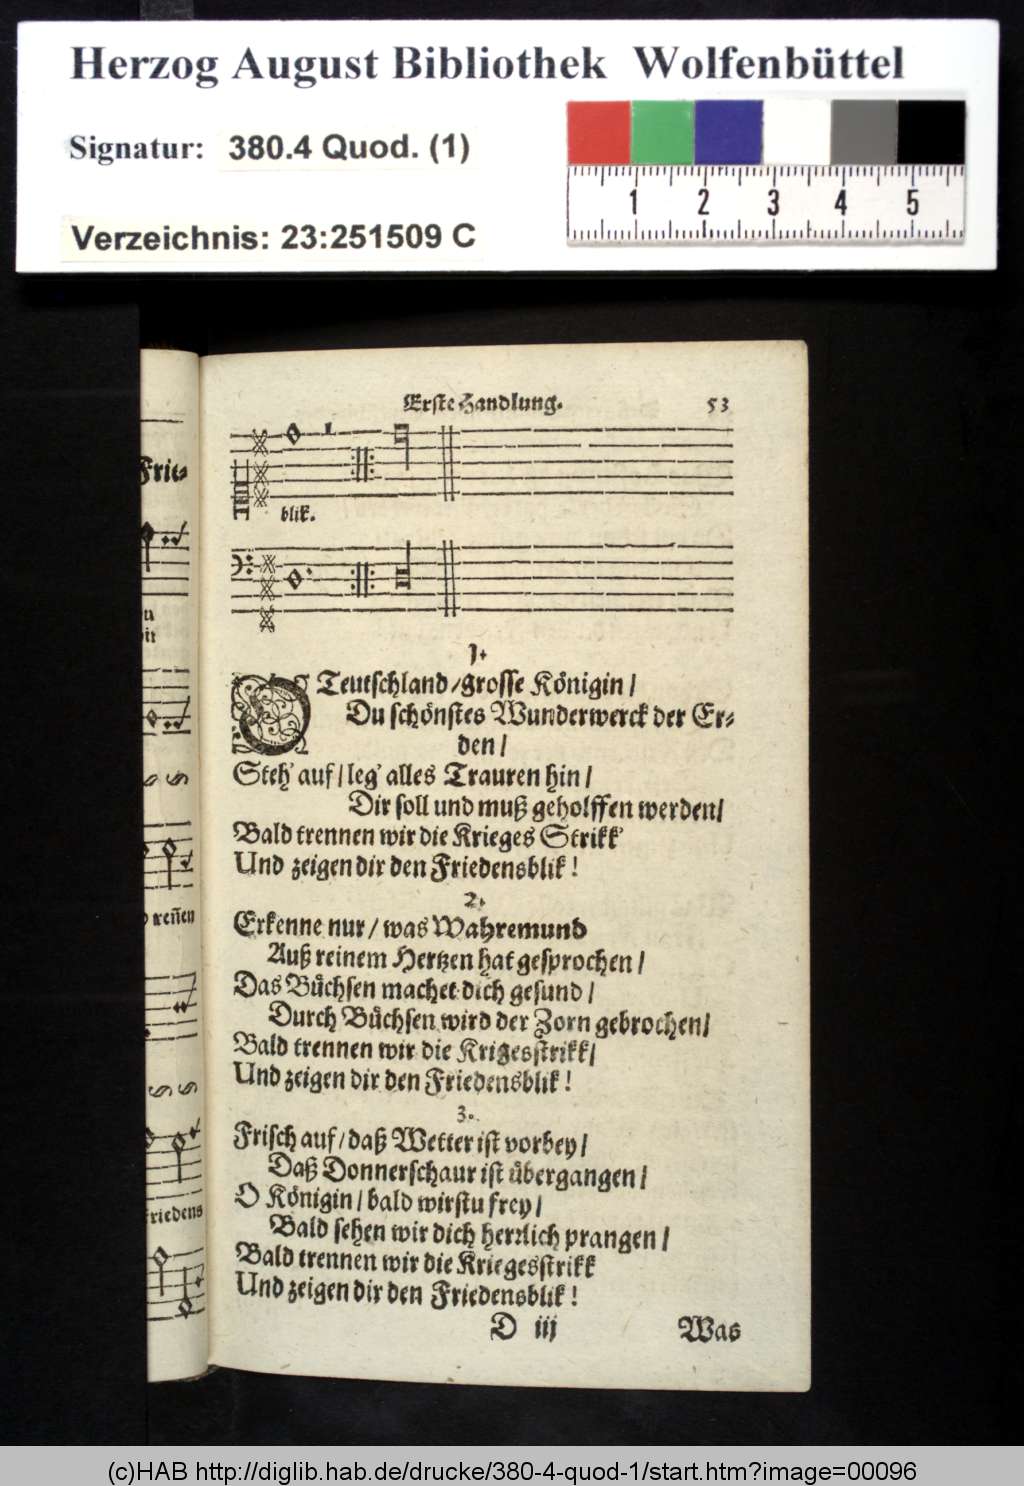 Herzog August Bibliothek Wolfenbüttel
Signatur: 380.4 Quod. (1)
Verzeichnis: 23:251509 C
1 2 3 4 5
Erste Handlung. 53
blik.
1.
O Teutschland/grosse Königin/
Du schönstes Wunderwerck der Er-
den/
Steh' auf/leg' alles Trauren hin/
Dir soll und muß geholffen werden/
Bald trennen wir die Krieges Strikk'
Und zeigen dir den Friedensblik!
2.
Erkenne nur/was Wahremund
Auß reinem Hertzen hat gesprochen/
Das Bůchsen machet dich gesund/
Durch Bůchsen wird der Zorn gebrochen/
Bald trennen wir die Krigesstrikk/
Und zeigen dir den Friedensblik!
3.
Frisch auf/daß Wetter ist vorbey/
Daß Donnerschaur ist übergangen/
O Königin/bald wirstu frey/
Bald sehen wir dich herrlich prangen/
Bald trennen wir die Kriegesstrikk
Und zeigen dir den Friedensblik!
D iij Was
Frie-
treñen
friedens
(c)HAB http://diglib.hab.de/drucke/380-4-quod-1/start.htm?image=00096